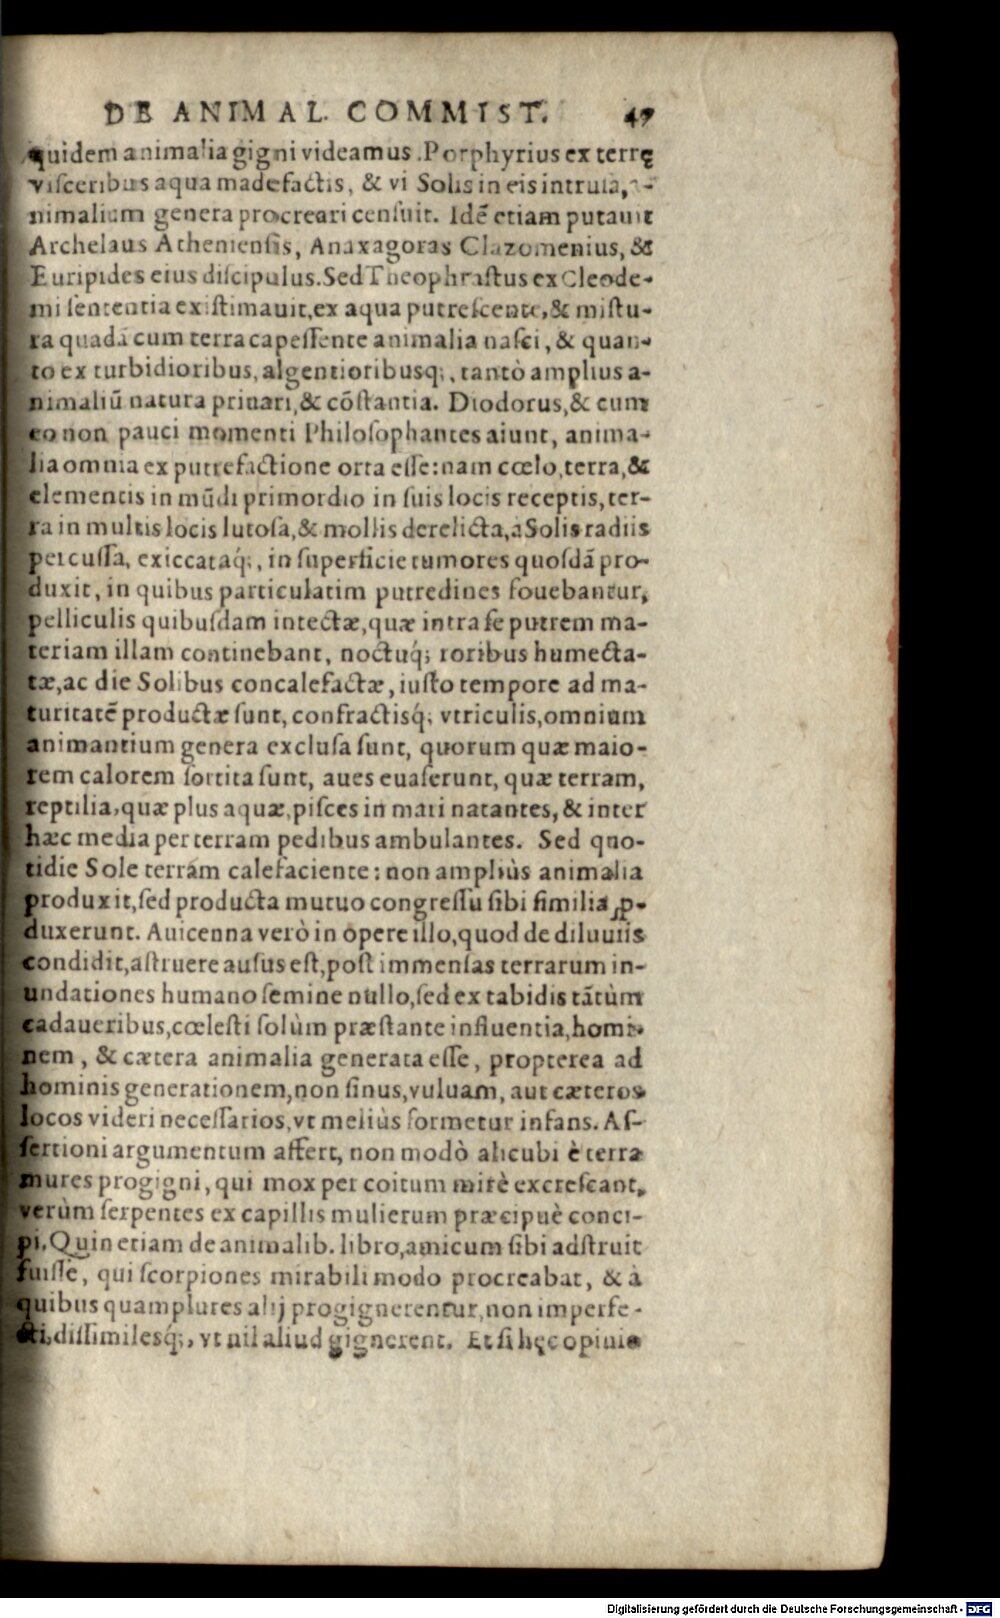 DE ANIMAL. COMMIST. 47
quidem animalia gigni videamus. Porphyrius ex terrę
visceribus aqua madefactis, & vi Solis in eis intrusa, a-
nimalium genera procreari censuit. Idē etiam putauit
Archelaus Atheniensis, Anaxagoras Clazomenius, &
Euripides eius discipulus. Sed Theophrastus ex Cleode-
mi sententia existimauit, ex aqua putrescente, & mistu-
ra quadā cum terra capessente animalia nasci, & quan-
to ex turbidioribus, algentioribusq;, tantò amplius a-
nimaliū natura priuari, & cōstantia. Diodorus, & cum
eo non pauci momenti Philosophantes aiunt, anima-
lia omnia ex putrefactione orta esse: nam cœlo, terra, &
elementis in mūdi primordio in suis locis receptis, ter-
ra in multis locis lutosa, & mollis derelicta, à Solis radiis
percussa, exiccataq́;, in superficie tumores quosdā pro-
duxit, in quibus particulatim putredines fouebantur,
pelliculis quibusdam intectæ, quæ intra se putrem ma-
teriam illam continebant, noctuq́; roribus humecta-
tæ, ac die Solibus concalefactæ, iusto tempore ad ma-
turitatē productæ sunt, confractisq́; vtriculis, omnium
animantium genera exclusa sunt, quorum quæ maio-
rem calorem sortita sunt, aues euaserunt, quæ terram,
reptilia, quæ plus aquæ, pisces in mari natantes, & inter
hæc media per terram pedibus ambulantes. Sed quo-
tidie Sole terram calefaciente: non ampliùs animalia
produxit, sed producta mutuo congressu sibi similia ꝓ-
duxerunt. Auicenna verò in opere illo, quod de diluuiis
condidit, astruere ausus est, post immensas terrarum in-
undationes humano semine nullo, sed ex tabidis tātùm
cadaueribus, cœlesti solùm præstante influentia, homi-
nem, & cætera animalia generata esse, propterea ad
hominis generationem, non sinus, vuluam, aut cæteros
locos videri necessarios, vt meliùs formetur infans. As-
sertioni argumentum affert, non modò alicubi è terra
mures progigni, qui mox per coitum mirè excrescant,
verùm serpentes ex capillis mulierum præcipuè conci-
pi. Quin etiam de animalib. libro, amicum sibi adstruit
fuisse, qui scorpiones mirabili modo procreabat, & à
quibus quamplures alij progignerentur, non imperfe-
cti, dissimilesq́;, vt nil aliud gignerent. Et si hęc opinio
Digitalisierung gefördert durch die Deutsche Forschungsgemeinschaft - DFG